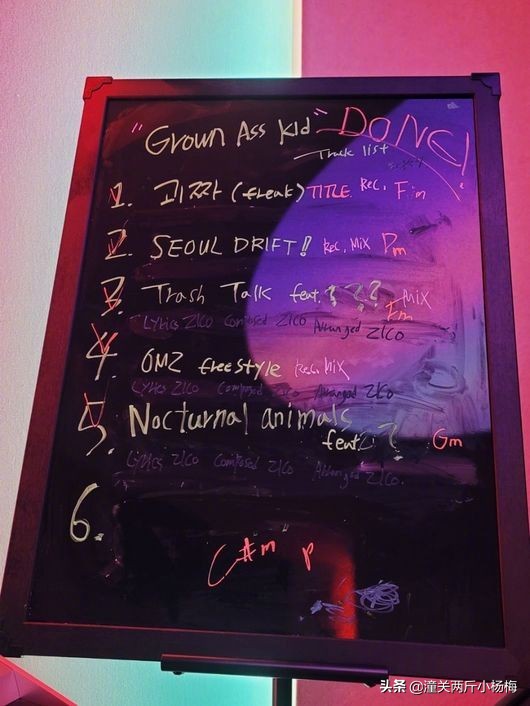 "Grown Ass Kid" DONE!
Track list
1. 괴짜 (freak) TITLE. Rec. F#m
2. SEOUL DRIFT! Rec, Mix Dm
3. Trash Talk feat. ? ? ? Mix
Lyrics ZICO Composed ZICO Arranged ZICO Fm
4. OMZ freestyle Rec, Mix
Lyrics ZICO Composed ZICO Arranged ZICO
5. Nocturnal animals
feat. ? Gm
Lyrics ZICO Composed ZICO Arranged ZICO.
6.
C#m P
头条 @潼关两斤小杨梅